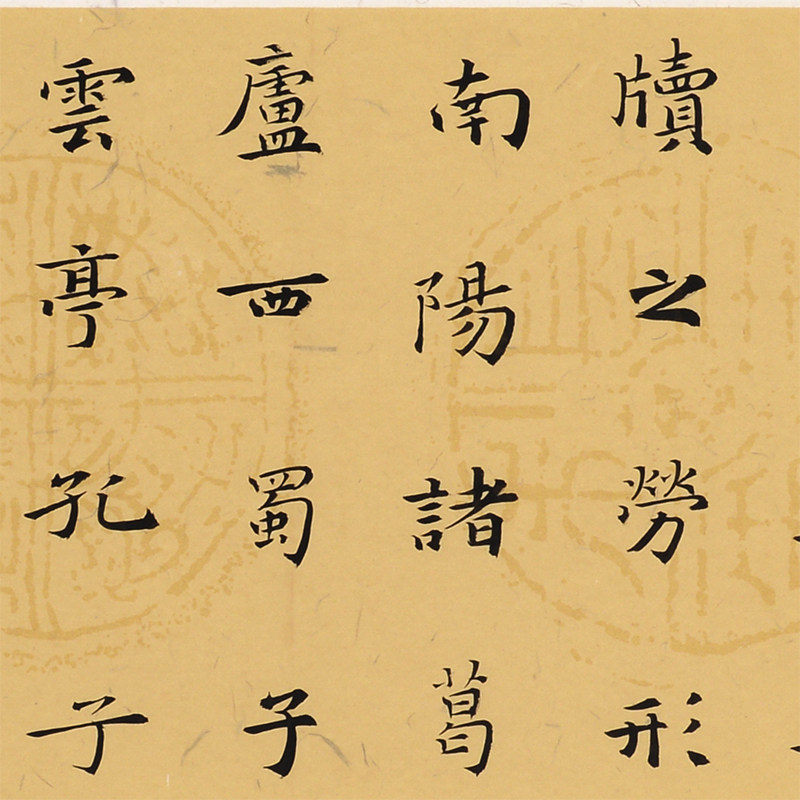 牘之勞形
南陽諸葛
廬西蜀子
雲亭孔子